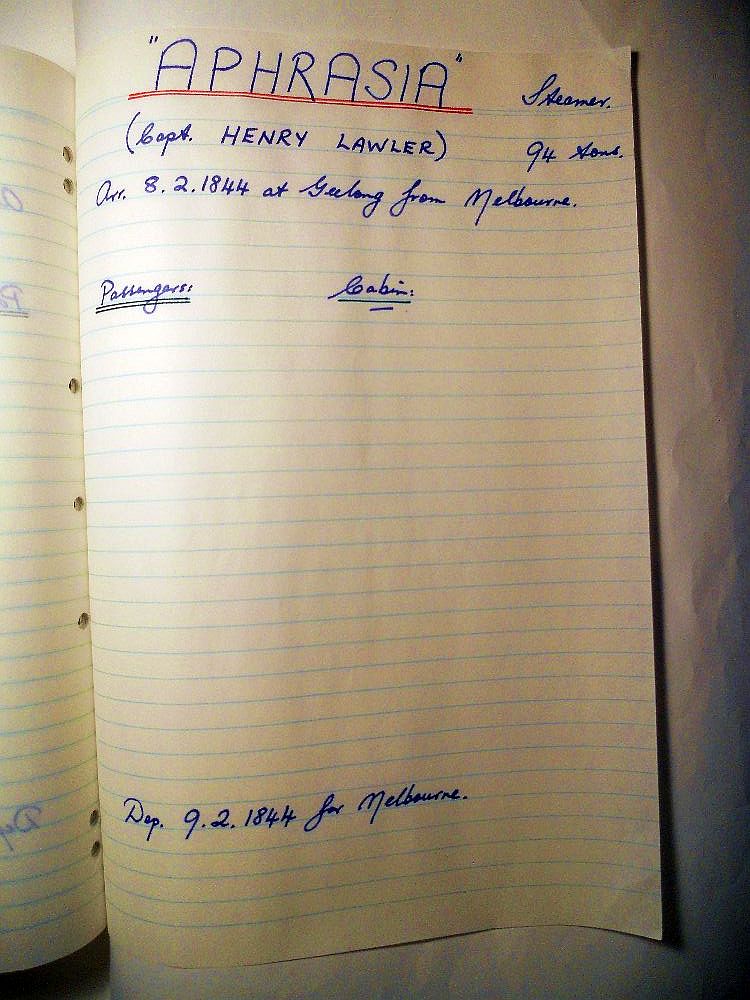 "APHRASIA" Steamer.
(Capt. HENRY LAWLER) 94 tons.
Arr. 8.2.1844 at Geelong from Melbourne.
Passengers: Cabin:
Dep. 9.2.1844 for Melbourne.